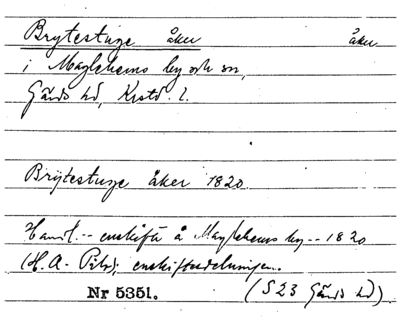 Brytestuge åker åker
i Maglehems by och sn,
Gärds hd, Krstd. l.
Brÿtestuge åker 1820
Handl. -- enskifte å Maglehems by -- 1820
(H. A. enskiftesdelningen.
Nr 5351. (S 23 Gärds hd).